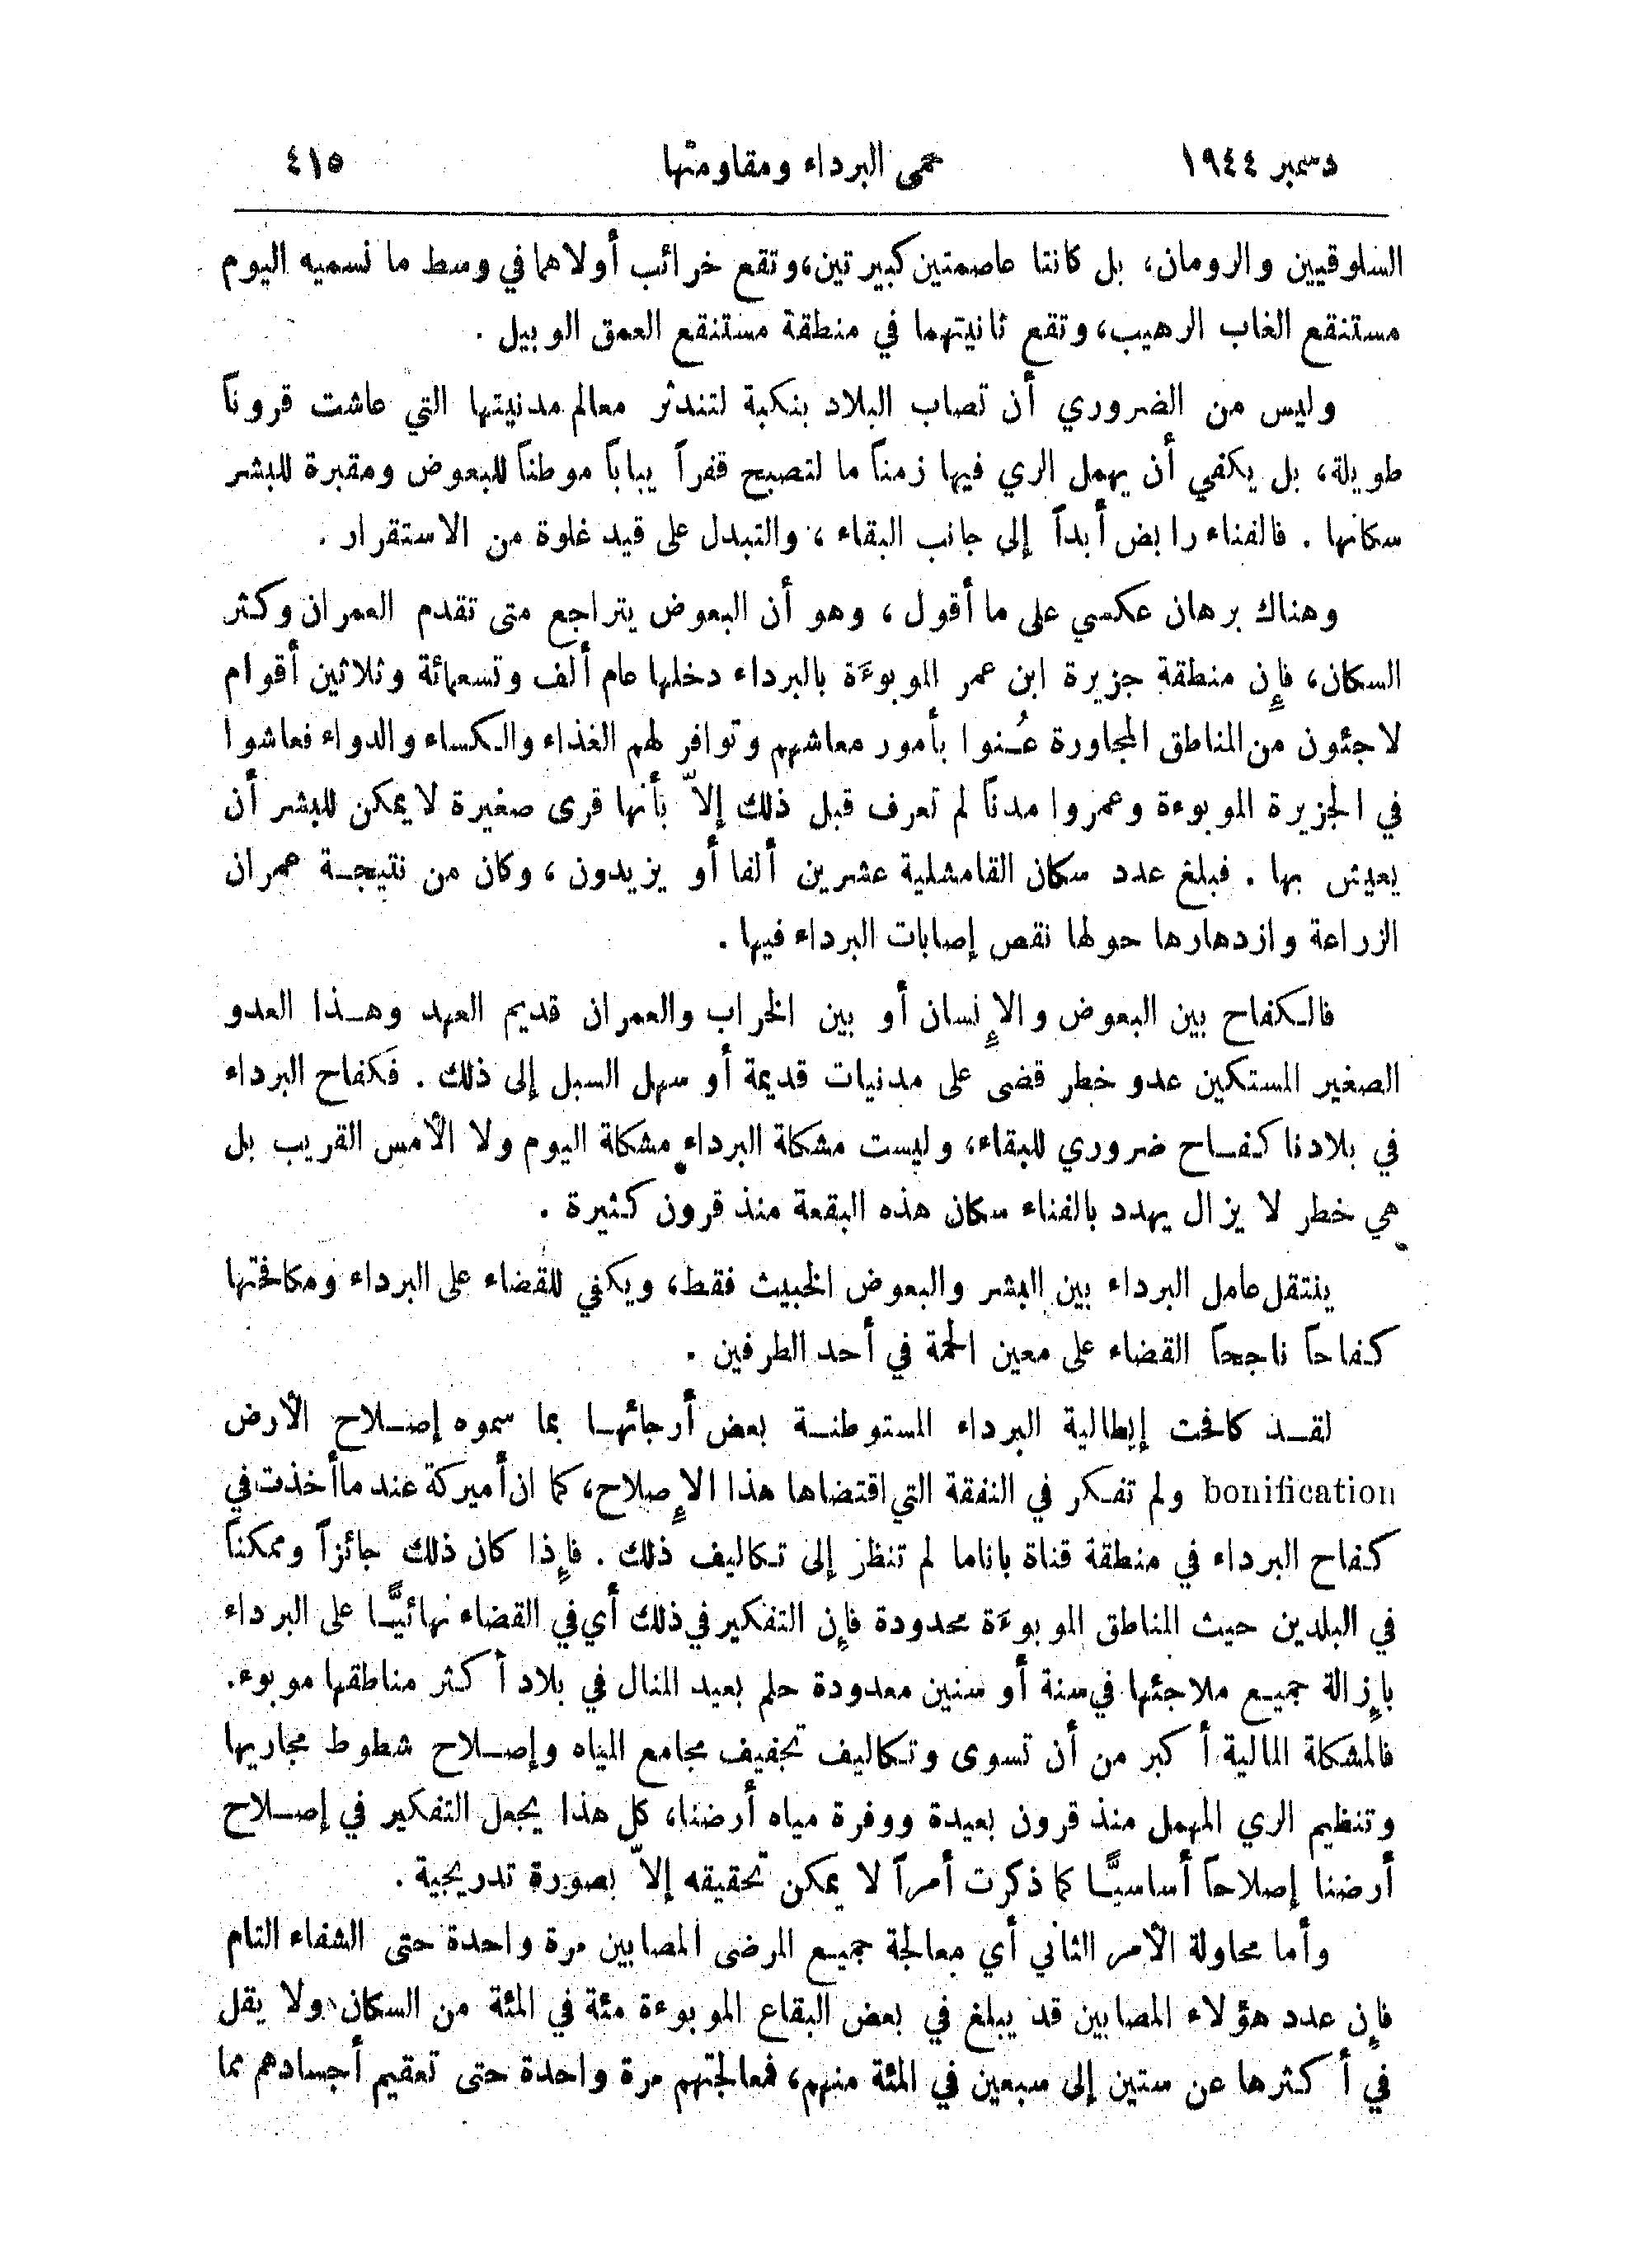 دسمبر ١٩٤٤ حمى البرداء ومقاومتها ٤١٥
السلوقيين والرومان، بل كانتا عاصمتين كبيرتين، وتقع خرائب أولاهما في وسط ما نسميه اليوم
مستنقع الغاب الرهيب، وتقع ثانيتهما في منطقة مستنقع العمق الوبيل .
وليس من الضروري أن تصاب البلاد بنكبة لتندثر معالم مدنيتها التي عاشت قروناً
طويلة، بل يكفي أن يهمل الري فيها زمناً ما لتصبح قفراً يباباً موطناً للبعوض ومقبرة للبشر
سكانها . فالفناء رابض أبداً إلى جانب البقاء ، والتبدل على قيد غلوة من الاستقرار .
وهناك برهان عكسي على ما أقول ، وهو أن البعوض يتراجع متى تقدم العمران وكثر
السكان، فإن منطقة جزيرة ابن عمر الموبوءَة بالبرداء دخلها عام ألف وتسعمائة وثلاثين أقوام
لاجئون من المناطق المجاورة عُنوا بأمور معاشهم وتوافر لهم الغذاء والكساء والدواء فعاشوا
في الجزيرة الموبوءة وعمروا مدناً لم تعرف قبل ذلك إلاّ بأنها قرى صغيرة لا يمكن للبشر أن
يعيش بها . فبلغ عدد سكان القامشلية عشرين ألفا أو يزيدون ، وكان من نتيجة عمران
الزراعة وازدهارها حولها نقص إصابات البرداء فيها .
فالكفاح بين البعوض والإنسان أو بين الخراب والعمران قديم العهد وهذا العدو
الصغير المستكين عدو خطر قضى على مدنيات قديمة أو سهل السبل إلى ذلك . فكفاح البرداء
في بلادنا كفاح ضروري للبقاء، وليست مشكلة البرداء مشكلة اليوم ولا الأمس القريب بل
هي خطر لا يزال يهدد بالفناء سكان هذه البقعة منذ قرون كثيرة .
ينتقل عامل البرداء بين البشر والبعوض الخبيث فقط، ويكفي للقضاء على البرداء ومكافحتها
كفاحاً ناجحاً القضاء على معين الحمة في أحد الطرفين .
لقد كافحت إيطالية البرداء المستوطنة بعض أرجائها بما سموه إصلاح الأرض
bonification ولم تفكر في النفقة التي اقتضاها هذا الإصلاح، كما ان أميركة عندما أخذت في
كفاح البرداء في منطقة قناة باناما لم تنظر إلى تكاليف ذلك . فإذا كان ذلك جائزاً وممكناً
في البلدين حيث المناطق الموبوءَة محدودة فإن التفكير في ذلك أي في القضاء نهائيًّا على البرداء
بإزالة جميع ملاجئها في سنة أو سنين معدودة حلم بعيد المنال في بلاد أكثر مناطقها موبوء.
فالمشكلة المالية أكبر من أن تسوى وتكاليف تجفيف مجامع المياه وإصلاح شطوط مجاريها
وتنظيم الري المهمل منذ قرون بعيدة ووفرة مياه أرضنا، كل هذا يجعل التفكير في إصلاح
أرضنا إصلاحاً أساسيًّا كما ذكرت أمراً لا يمكن تحقيقه إلاّ بصورة تدريجية .
وأما محاولة الأمر الثاني أي معالجة جميع المرضى المصابين مرة واحدة حتى الشفاء التام
فإن عدد هؤلاء المصابين قد يبلغ في بعض البقاع الموبوءة مئة في المئة من السكان ولا يقل
في أكثرها عن ستين إلى سبعين في المئة منهم، فمعالجتهم مرة واحدة حتى تعقيم أجسادهم مما